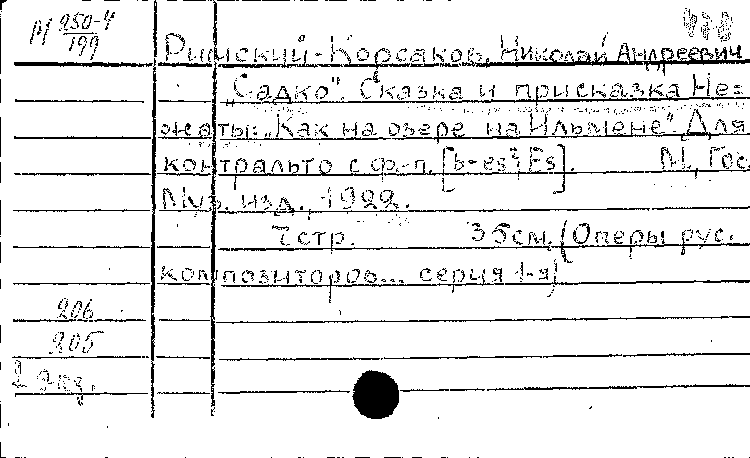 М 250-4
199
Римский-Корсаков, Николай Андреевич
„Садко". Сказка и присказка Не=
жаты: „Как на озере на Ильмене" Для
контральто с ф.-п. [b-es²; Es]. М., Гос.
Муз. изд., 1922.
7 стр. 35 см. (Оперы рус.
композиторов... серия 1-я)
206
205
2 экз.